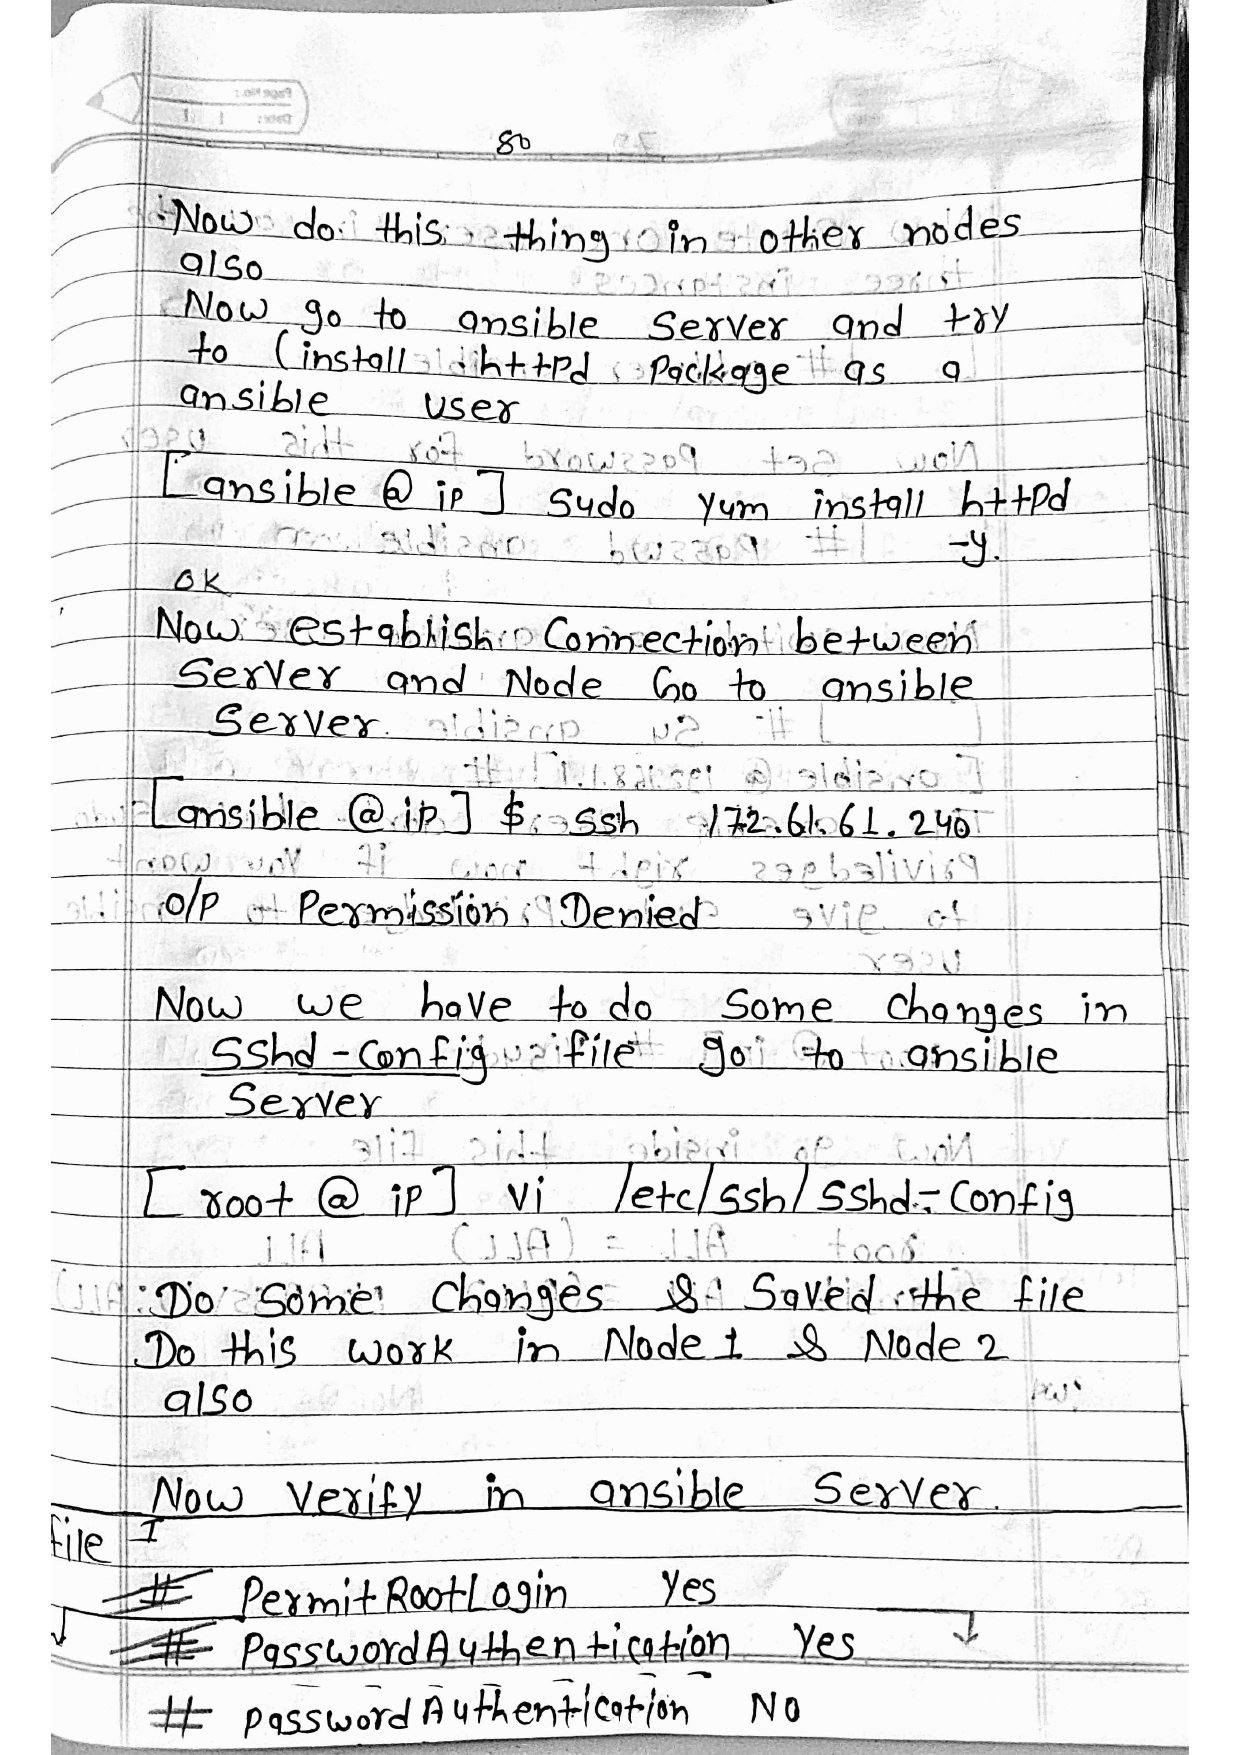 80
Now do this thing in other nodes
also
Now go to ansible Server and try
to (install httpd Package as a
ansible user
[ansible @ ip] Sudo yum install httpd
-y.
OK
Now establish Connection between
Server and Node Go to ansible
Server.
[ansible @ ip] $ ssh 172.61.61.240
O/P Permission Denied
Now we have to do Some Changes in
SShd-Config file go to ansible
Server
[root @ ip] vi /etc/ssh/sshd-Config
Do Some Changes & Saved the file
Do this work in Node 1 & Node 2
also
Now Verify in ansible Server.
file I
# PermitRootLogin Yes
# PasswordAuthentication Yes
# PasswordAuthentication No